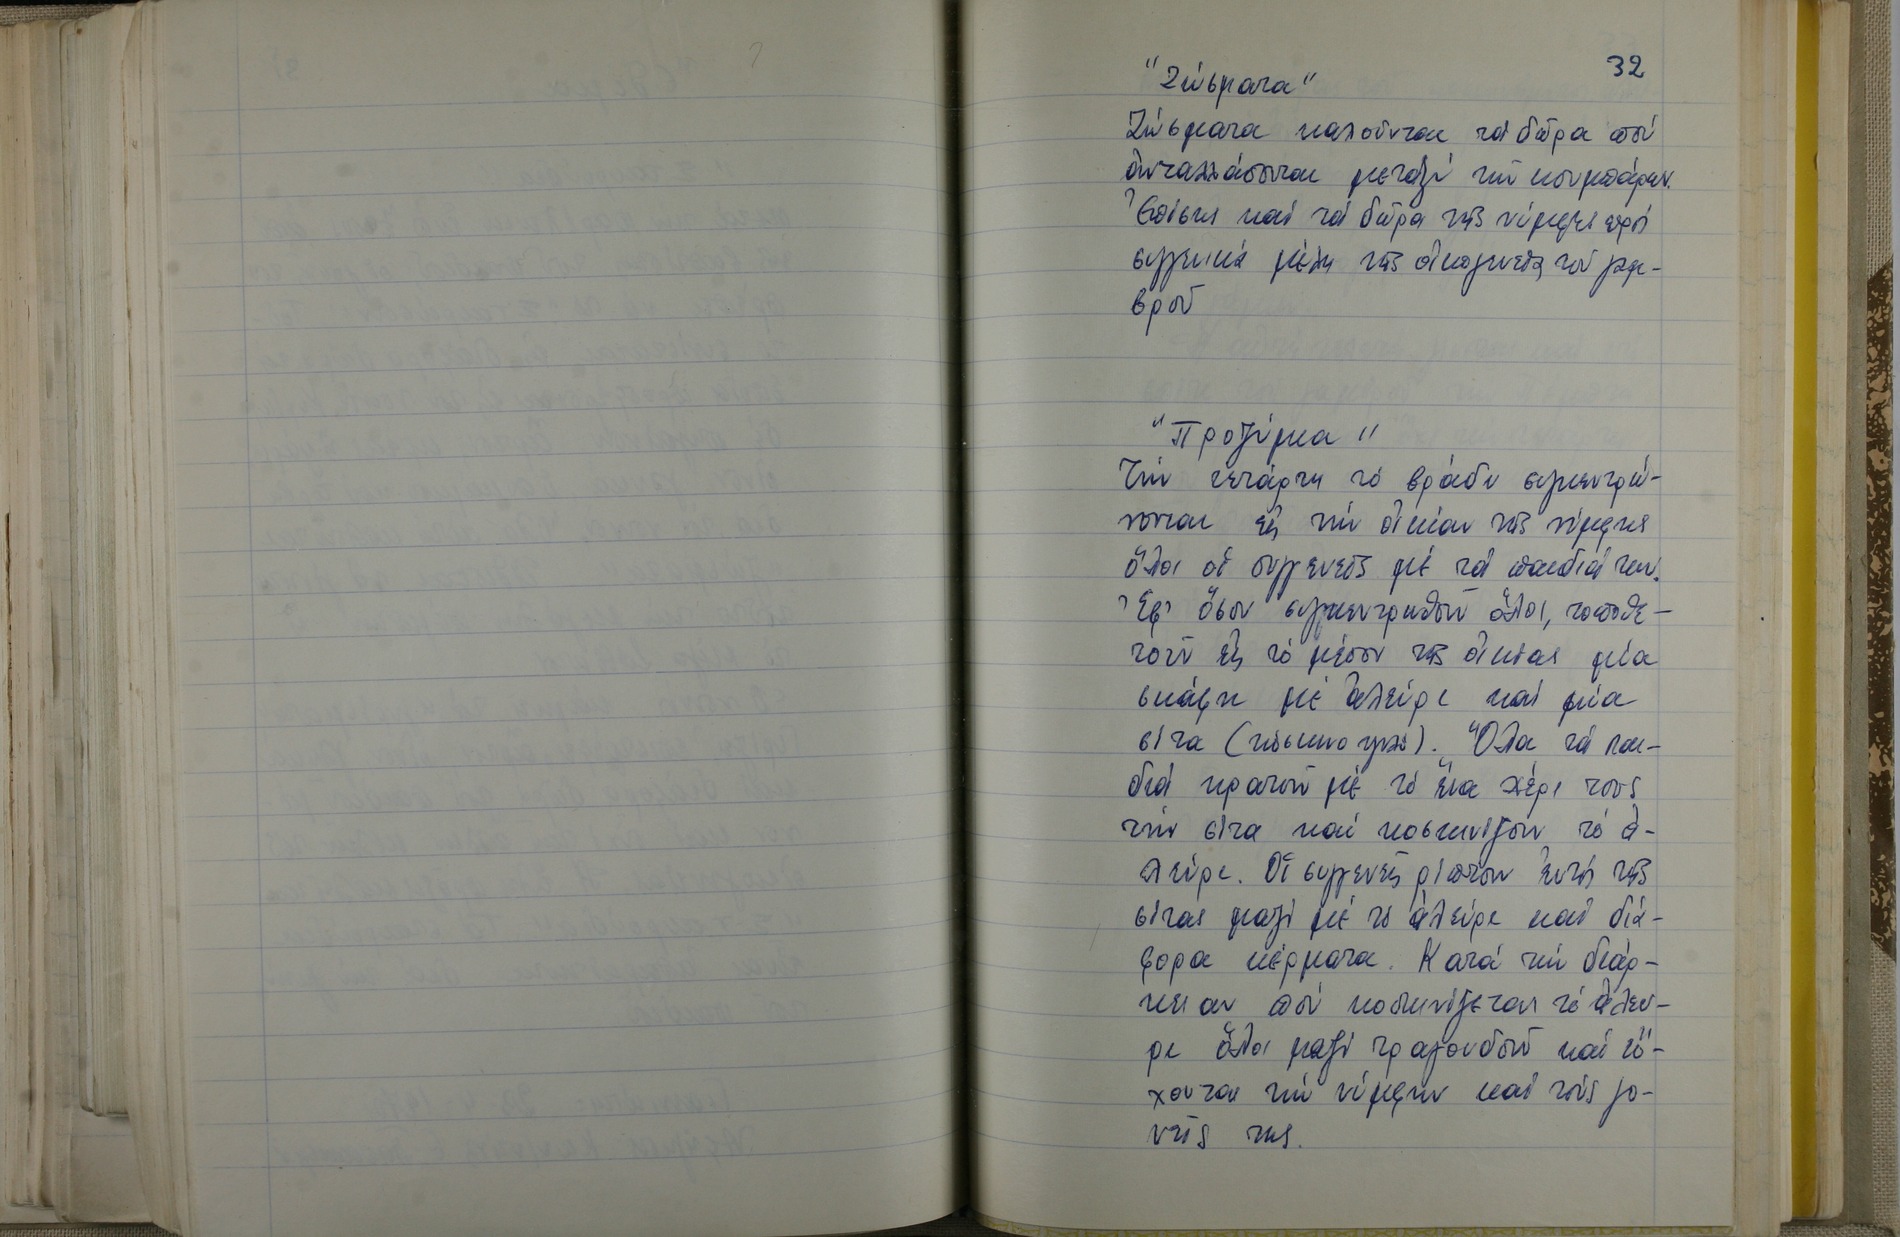 32
"Ζώσματα"
Ζώσματα καλοῦνται τά δῶρα πού
ἀνταλλάσονται μεταξύ τῶν κουμπάρων.
Ἐπίσης καί τά δῶρα τῆς νύμφης πρός
συγγενικά μέλη τῆς οἰκογενείας τοῦ γαμ-
βροῦ
"Προζύμια"
Τήν τετάρτη τό βράδυ συγκεντρώ-
νονται εἰς τήν οἰκίαν τῆς νύμφης
ὅλοι οἱ συγγενεῖς μέ τά παιδιά των.
Ἐφ' ὅσον συγκεντρωθοῦν ὅλοι, τοποθε-
τοῦν εἰς τό μέσον τῆς οἰκίας μία
σκάφη μέ ἀλεύρι καί μία
σίτα (κόσκινο ψιλό). Ὅλα τά παι-
διά κρατοῦν μέ τό ἕνα χέρι τους
τήν σίτα καί κοσκινίζουν τό ἀ-
λεύρι. Οἱ συγγενεῖς ρίπτουν ἐντός τῆς
σίτας μαζί μέ τό ἀλεύρι καί διά-
φορα κέρματα. Κατά τήν διάρ-
κειαν πού κοσκινίζεται τό ἀλεύ-
ρι ὅλοι μαζί τραγουδοῦν καί εὔ-
χονται τήν νύμφην καί τούς γο-
νεῖς της.